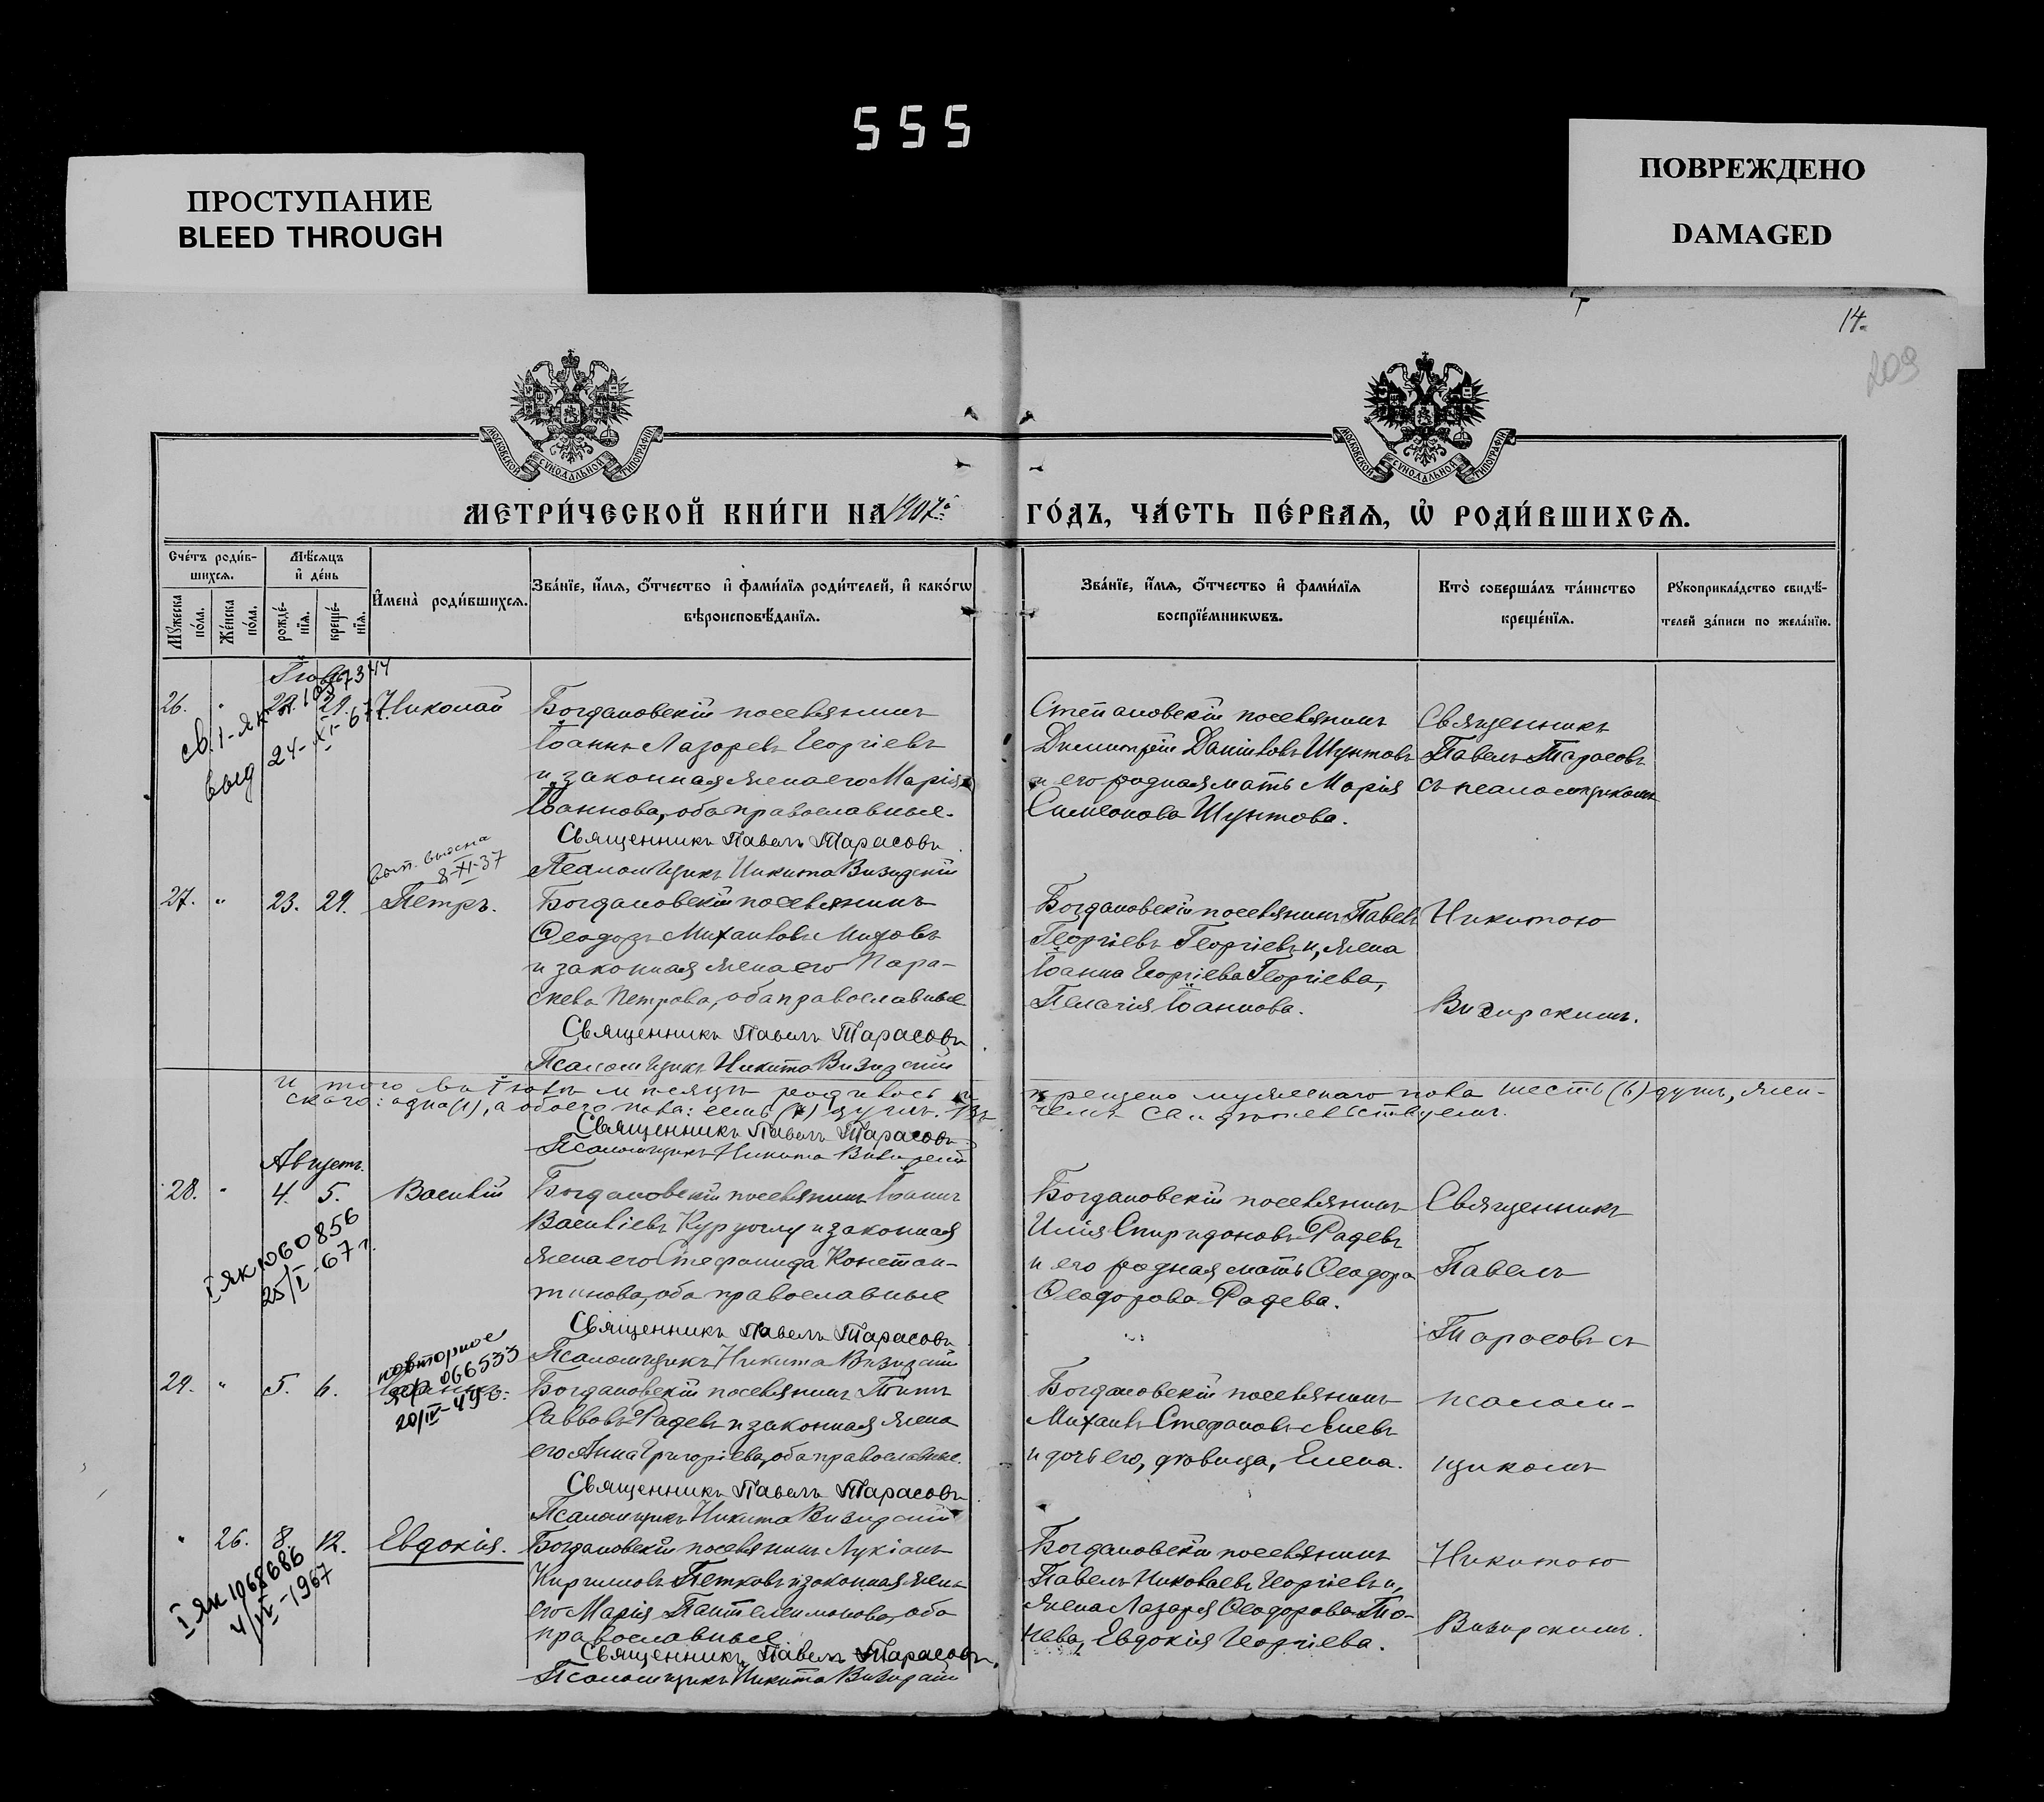 555
ПРОСТУПАНИЕ
BLEED THROUGH
ПОВРЕЖДЕНО
DAMAGED
14.
209
МОСКОВСКОЙ СУНОДАЛЬНОЙ ТИПОГРАФІИ
МОСКОВСКОЙ СУНОДАЛЬНОЙ ТИПОГРАФІИ
МЕТРИ́ЧЕСКОЙ КНИ́ГИ НА 1907 й
ГО́ДЪ, ЧА́СТЬ ПЕ́РВАЯ, Ѡ҆ РОДИ́ВШИХСЯ.
Сче́тъ роди́в-
шихся.
Мѣ́сяцъ
и҆ де́нь
Му́жеска по́ла.
Же́нска по́ла.
рожде́-
нїя.
креще́-
нїя.
И҆мена̀ роди́вшихся.
Зва́нїе, и҆́мя, ѻ҆́тчество и҆ фами́лїя роди́телей, и҆ како́гѡ
вѣроисповѣ́данїя.
Зва́нїе, и҆́мя, ѻ҆́тчество и҆ фами́лїя
воспрїе́мникѡвъ.
Кто̀ соверша́лъ та́инство
креще́нїя.
Рꙋкоприкла́дство свидѣ́-
телей за́писи по жела́нїю.
Іюль
26. " 29. Николай
св. 1-як
выд 24-XI-67 г.
Богдановскій поселянинъ
Іоаннъ Лазаревъ Георгіевъ
и законная жена его Марія
Іоаннова, оба православные.
Священникъ Павелъ Тарасовъ
Псаломщикъ Никита Визирскій
Степановскій поселянинъ
Димитрій Даніиловъ Шунтовъ
и его родная мать Марія
Симеонова Шунтова.
Священникъ
Павелъ Тарасовъ
съ псаломщикомъ
8-XI-37
27. " 23. 29. Петръ.
Богдановскій поселянинъ
Ѳеодоръ Михаиловъ
и законная жена его Пара-
скева Петрова, оба православные
Священникъ Павелъ Тарасовъ
Псаломщикъ Никита Визирскій
Богдановскій поселянинъ Павелъ
Георгіевъ Георгіевъ и, жена
Іоанна Георгіева Георгіева,
Пелагія Іоаннова.
Никитою
Визирскимъ.
Итого въ Іюлѣ мѣсяцѣ родилось и крещено мужескаго пола шесть (6) душъ, жен-
скаго: одна (1), а обоего пола: семь (7) душъ. Въ чемъ и свидѣтельствуемъ.
Священникъ Павелъ Тарасовъ
Псаломщикъ Никита Визирскій
Августъ.
28. " 4. 5. Василій
I як 1060856
25/I-67 г.
Богдановскій поселянинъ Іоаннъ
Василіевъ Курдоглу и законная
жена его Стефанида Констан-
тинова, оба православные
Священникъ Павелъ Тарасовъ
Псаломщикъ Никита Визирскій
Богдановскій поселянинъ
Илія Спиридоновъ Радевъ
и его родная мать Ѳеодора
Ѳеодорова Радева.
Священникъ
Павелъ
Тарасовъ съ
повторное
066533
20/IV-49 г.
29. " 5. 6.
Богдановскій поселянинъ Титъ
Савовъ Радевъ и законная жена
его Анна Григоріева, оба православные.
Священникъ Павелъ Тарасовъ
Псаломщикъ Никита Визирскій
Богдановскій поселянинъ
Михаилъ Стефановъ
и дочь его, дѣвица, Елена.
псалом-
щикомъ
" 26. 8. 12. Евдокія.
I як 1068686
4/IV-1967
Богдановскій поселянинъ Лукіанъ
Кирилловъ Петковъ и законная жена
его Марія Пантелеимонова, оба
православные.
Священникъ Павелъ Тарасовъ
Псаломщикъ Никита Визирскій
Богдановскій поселянинъ
Павелъ Николаевъ Георгіевъ и,
жена Лазаря Ѳеодорова То-
нева, Евдокія Георгіева.
Никитою
Визирскимъ.